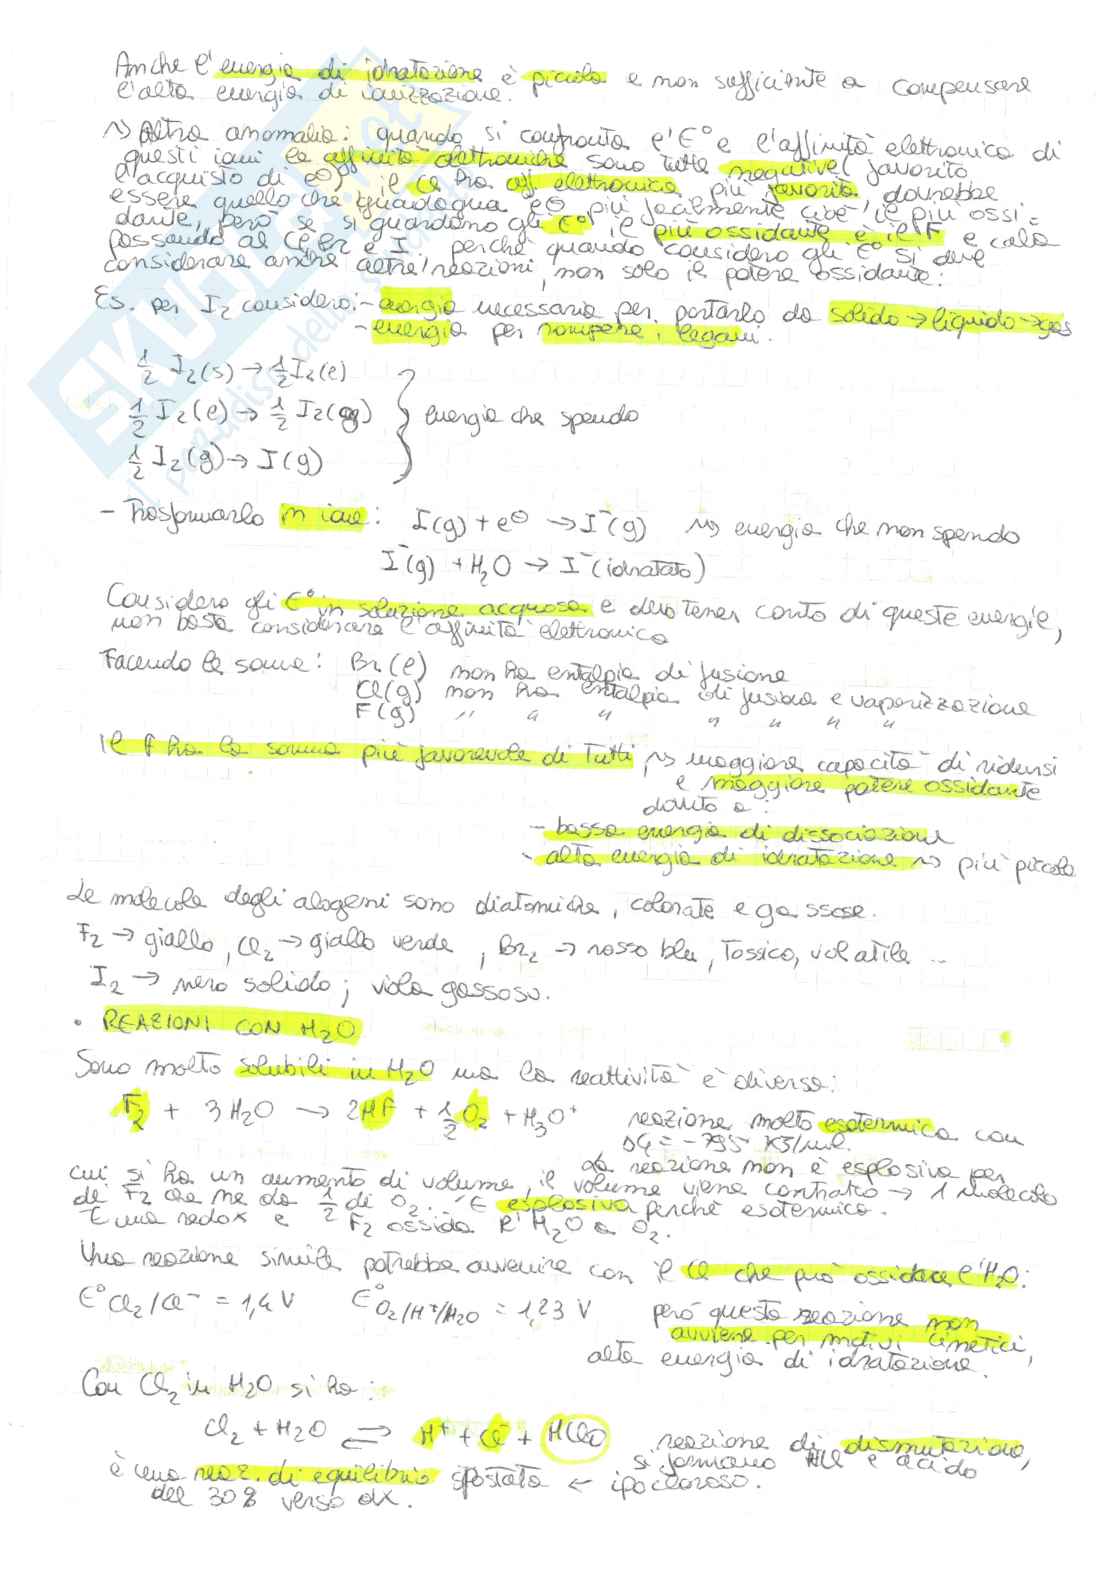 Anche l'energia di idratazione è piccola e non sufficiente a compensare
l'alta energia di ionizzazione.
Altra anomalia: quando si confronta l'E° e l'affinità elettronica di
questi ioni le affinità elettroniche sono tutte negative (favorito
l'acquisto di e⊖) il Cl ha aff elettronica più favorita, dovrebbe
essere quello che guadagna e⊖ più facilmente cioè il più ossi=
dante, però se si guardano gli E° il più ossidante è il F e cala
passando al Cl, Br e I perché quando considero gli E° si deve
considerare anche altre reazioni, non solo il potere ossidante:
Es. per I₂ considero: - energia necessaria per portarlo da solido → liquido → gas
- energia per rompere i legami.
½ I₂(s) → ½ I₂(l)
½ I₂(l) → ½ I₂(g) } energia che spendo
½ I₂(g) → I(g)
- Trasformarlo in ione: I(g) + e⊖ → I⁻(g) energia che non spendo
I⁻(g) + H₂O → I⁻(idratato)
Considero gli E° in soluzione acquosa e devo tener conto di queste energie,
non basta considerare l'affinità elettronica
Facendo le somme: Br(l) non ha entalpia di fusione
Cl(g) non ha entalpia di fusione e vaporizzazione
F(g) " " " " " " "
il F ha la somma più favorevole di tutti, maggiore capacità di ridursi
e maggiore potere ossidante
dovuto a:
- bassa energia di dissociazione
- alta energia di idratazione più piccolo
Le molecole degli alogeni sono diatomiche, colorate e gassose.
F₂ → giallo, Cl₂ → giallo verde, Br₂ → rosso blu, tossico, volatile ...
I₂ → nero solido; viola gassoso.
• REAZIONI CON H₂O
Sono molto solubili in H₂O ma la reattività è diversa:
F₂ + 3H₂O → 2HF + ½O₂ + H₃O⁺ reazione molto esotermica con
ΔG = -795 KJ/mol.
cui si ha un aumento di volume, la reazione non è esplosiva per
il volume viene contratto → 1 molecola
di F₂ che ne da ½ di O₂. È esplosiva perché esotermica.
È una redox e F₂ ossida l'H₂O a O₂.
Una reazione simile potrebbe avvenire con il Cl che può ossidare l'H₂O:
E°Cl₂/Cl⁻ = 1,4 V E°O₂/H⁺/H₂O = 1,23 V però questa reazione non
avviene per motivi cinetici,
alta energia di idratazione.
Con Cl₂ in H₂O si ha:
Cl₂ + H₂O ⇌ H⁺ + Cl⁻ + HClO reazione di dismutazione,
si formano HCl e acido
è una reaz. di equilibrio spostata ← ipocloroso.
del 30% verso dx.
SKUOLA.net
il paradiso dello studente